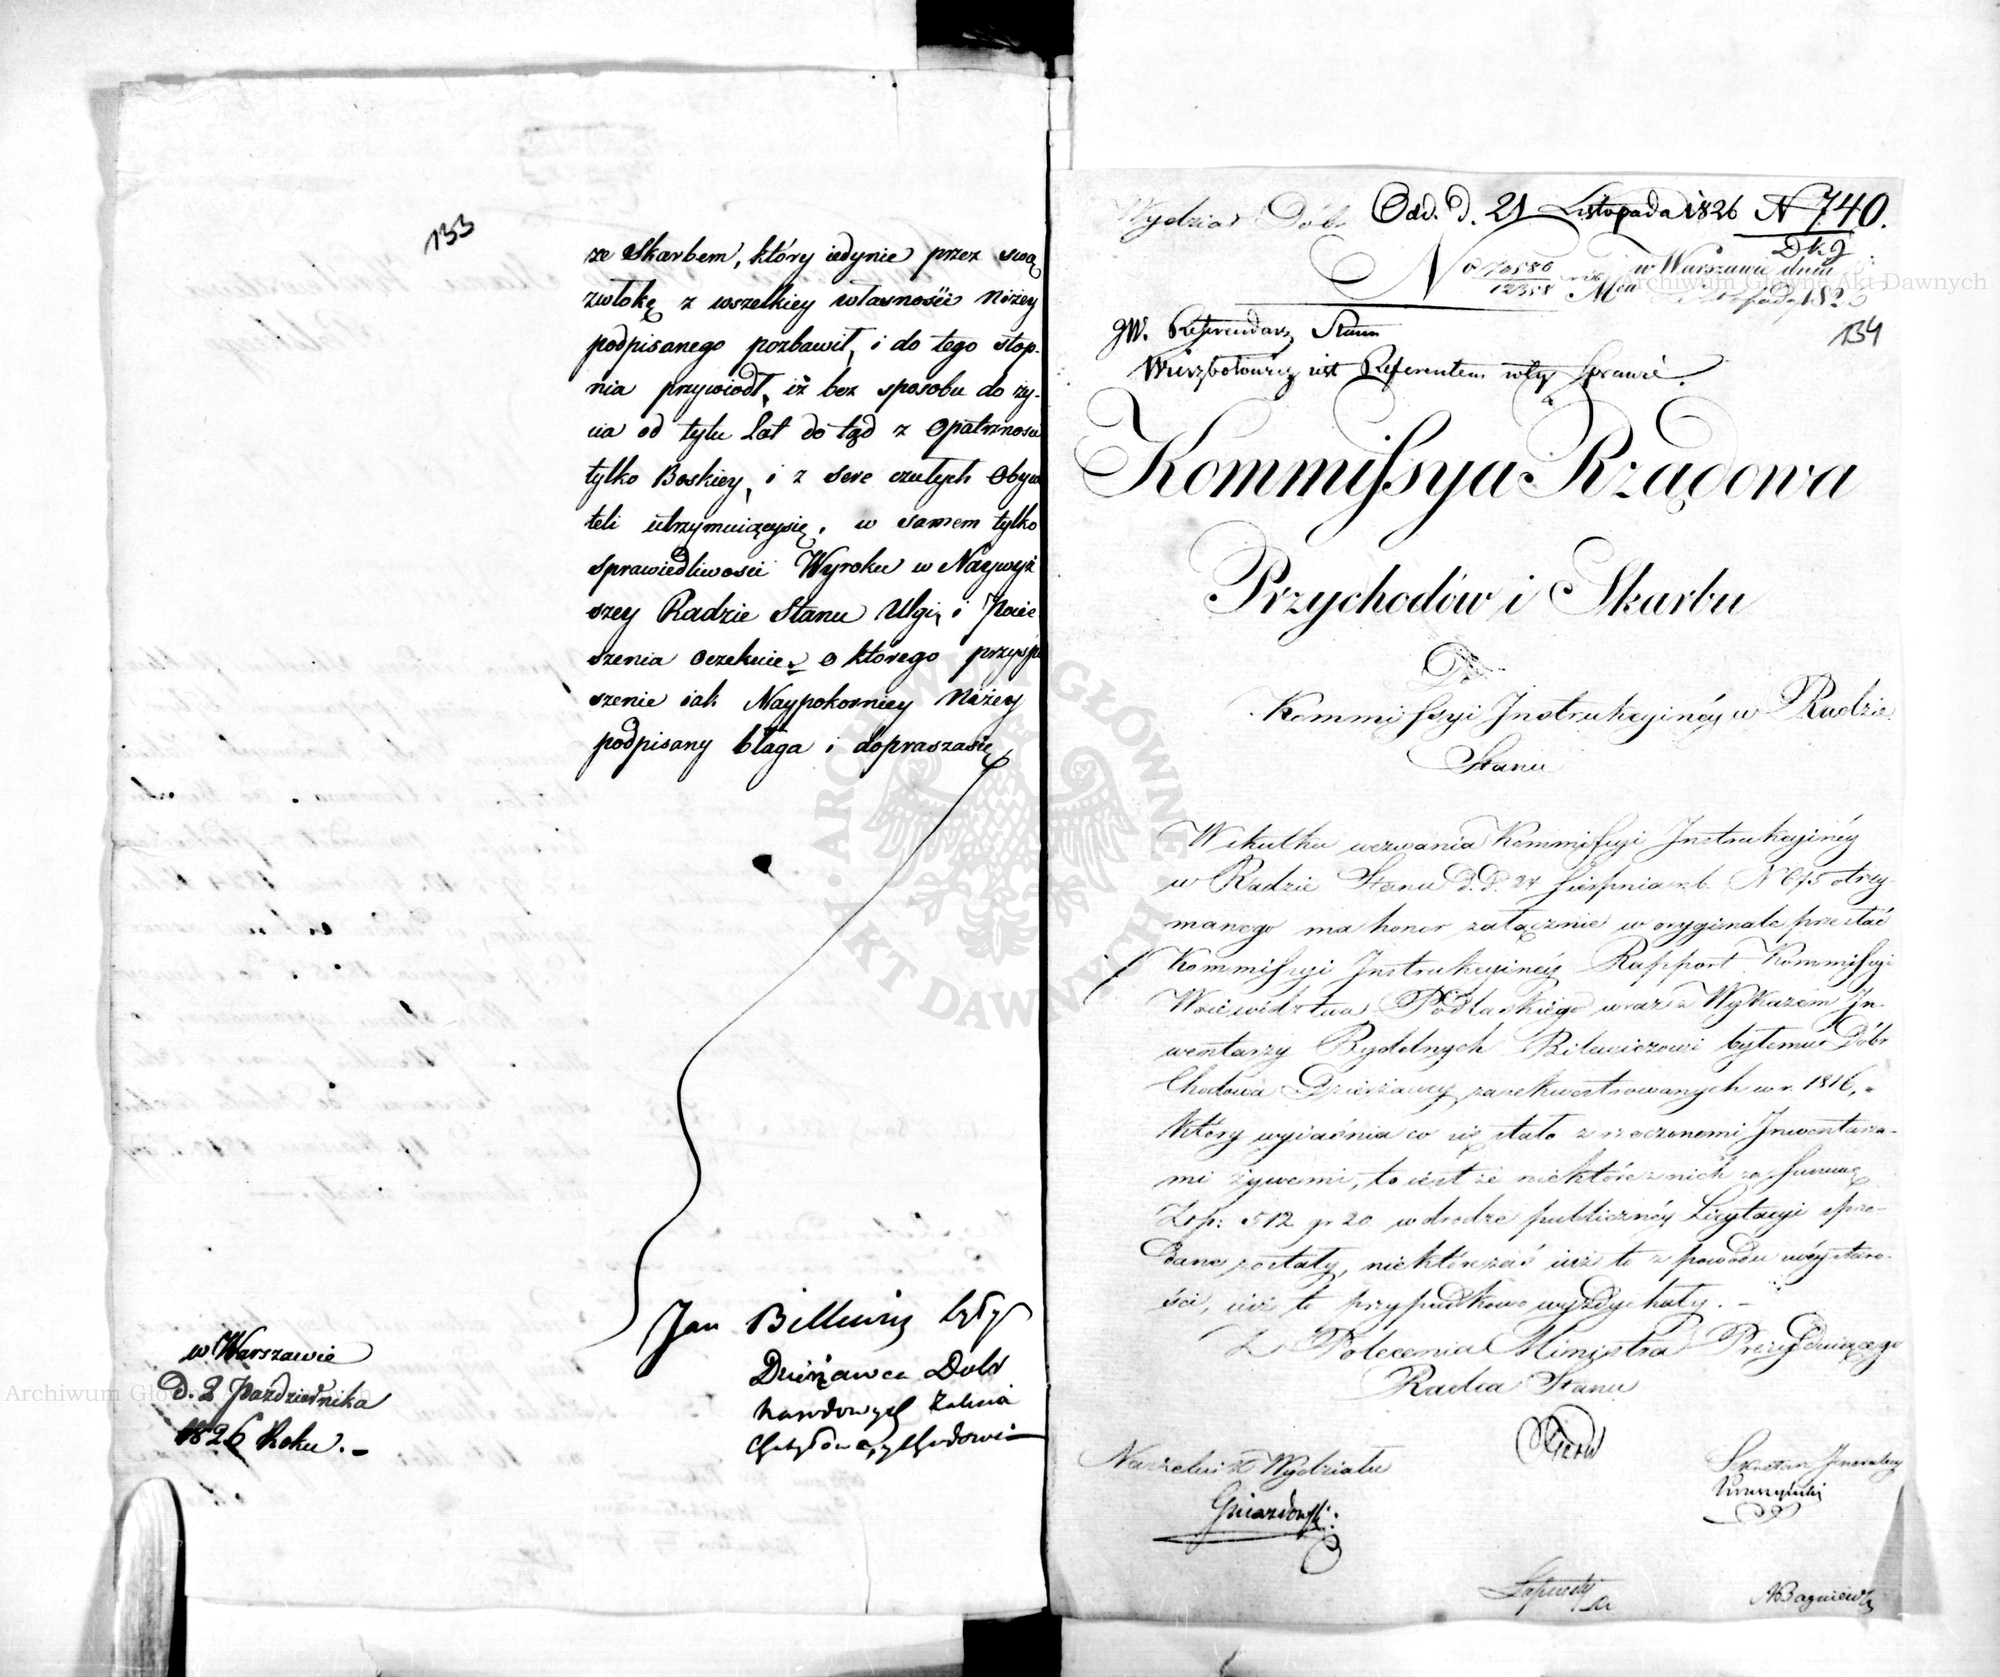 133
ze Skarbem, który iedynie przez swą
zwłokę z wszelkiey własności niżey
podpisanego pozbawił, i do tego stop-
nia przywiodł, iż bez sposobu do ży-
cia od tylu Lat do tąd z Opatrznosci
tylko Boskiey, i z serc czułych Obywa
teli utrzymuiącysię, w samem tylko
sprawiedliwosci Wyroku w Naywyż
szey Radzie Stanu Ulgi, i Pocie
szenia oczekuie, o ktorego przyspie
szenie iak Naypokorniey Niżey
podpisany błaga i dopraszasię
Jan Billewicz były
Dzierżawca Dobr
Narodowych
w Warszawie
d. 2 Pazdziernika
1826 Roku.
Wydział Dóbr Odd. d. 21 Listopada 1826 N 740.
No 70580 w Warszawie dnia
12358 1826
134
JW. Referendarz Stanu
Wierzbołowicz iest Referentem w tey Sprawie.
Kommissya Rządowa
Przychodów i Skarbu
Do
Kommissyi Instrukcyinéy w Radzie
Stanu
W skutku wezwania Kommissyi Instrukcyinéy
w Radzie Stanu d. d. 24 Sierpnia r. b. N 675 otrzy-
manego ma honor załącznie w oryginale przesłać
Kommissyi Instrukcyinéy Rapport Kommissyi
Woiewództwa Podlaskiego wraz z Wykazem In-
wentarzy Bydelnych Bilewiczowi byłemu Dóbr
Chodowa Dzierżawcy zasekwestrowanych w r. 1816,
który wyiaśnia co się stało z rzeczonemi Inwentarza-
mi żywemi, to iest że niektóre z nich za summę
Złp: 512 gr 20 w drodze publicznéy Licytacyi sprze-
dane zostały, niektóre zaś iuż to z powodu swéy staro-
ści, iuż to przypadkowo wyzdychały. –
Z Polecenia Ministra Prezyduiącego
Radca Stanu
Naczelnik Wydziału
Gniazdowski
Sekretarz Jeneralny